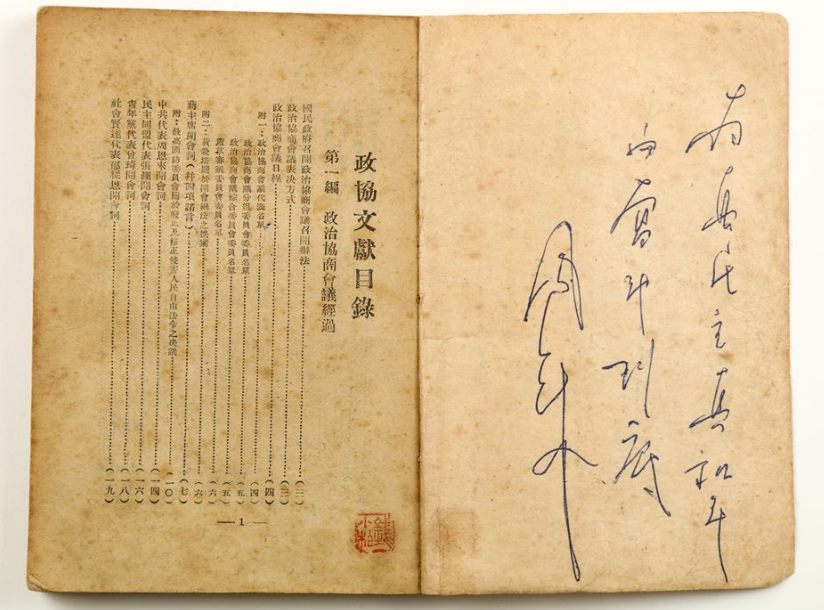 为真民主真和平
而奮斗到底
周恩来
政協文獻目錄
第一編 政治協商會議經過
國民政府召開政治協商會議召開辦法……（三）
政治協商會議表决方式……（三）
政治協商會議日程……（四）
附一：政治協商會議代表名單……（四）
政治協商會議分組委員會委員名單……（五）
政治協商會議綜合委員會委員名單……（五）
憲草審議委員會委員名單……（六）
附二：關於開會辦法之提案……（六）
蔣主席開會詞（幷四項諾言）……（七）
附：最高國防委員會關於廢止及修正侵害人民自由法令之決議……（一〇）
中共代表周恩來開會詞……（一四）
民主同盟代表張瀾開會詞……（一六）
青年黨代表曾琦開會詞……（一八）
社會賢達代表邵從恩開會詞……（一九）
— 1 —